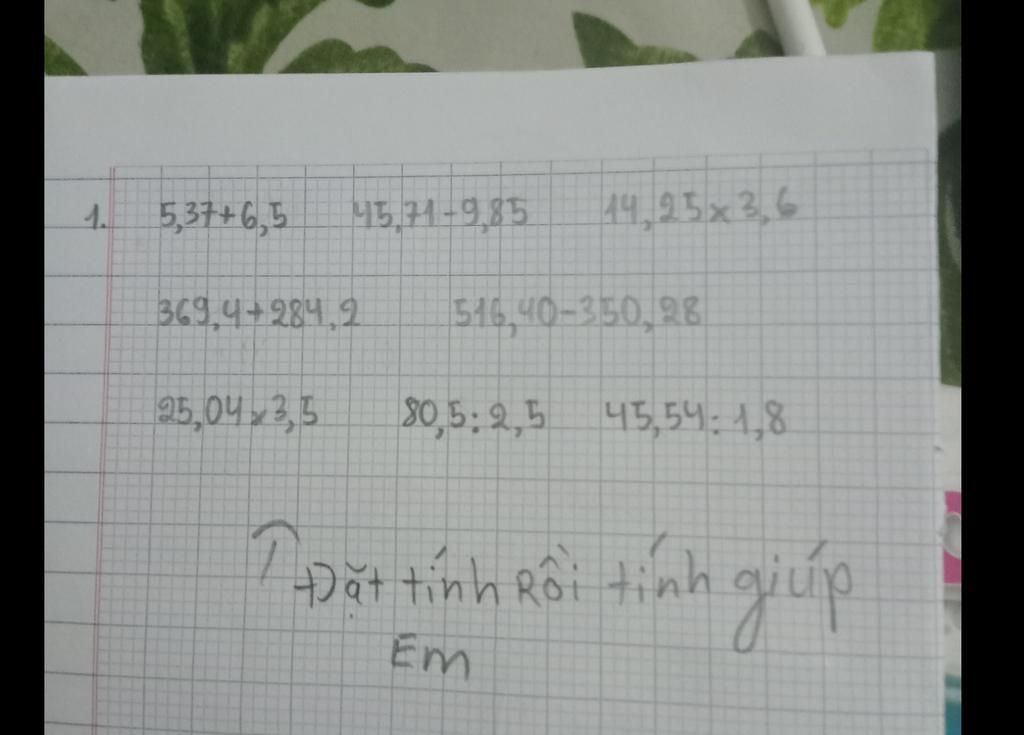 1. 5,37+6,5 45,71-9,85 14,25x3,6
369,4+284,2 516,40-350,28
25,04x3,5 80,5:2,5 45,54:1,8
↑ Đặt tính Rồi tính giúp
Em